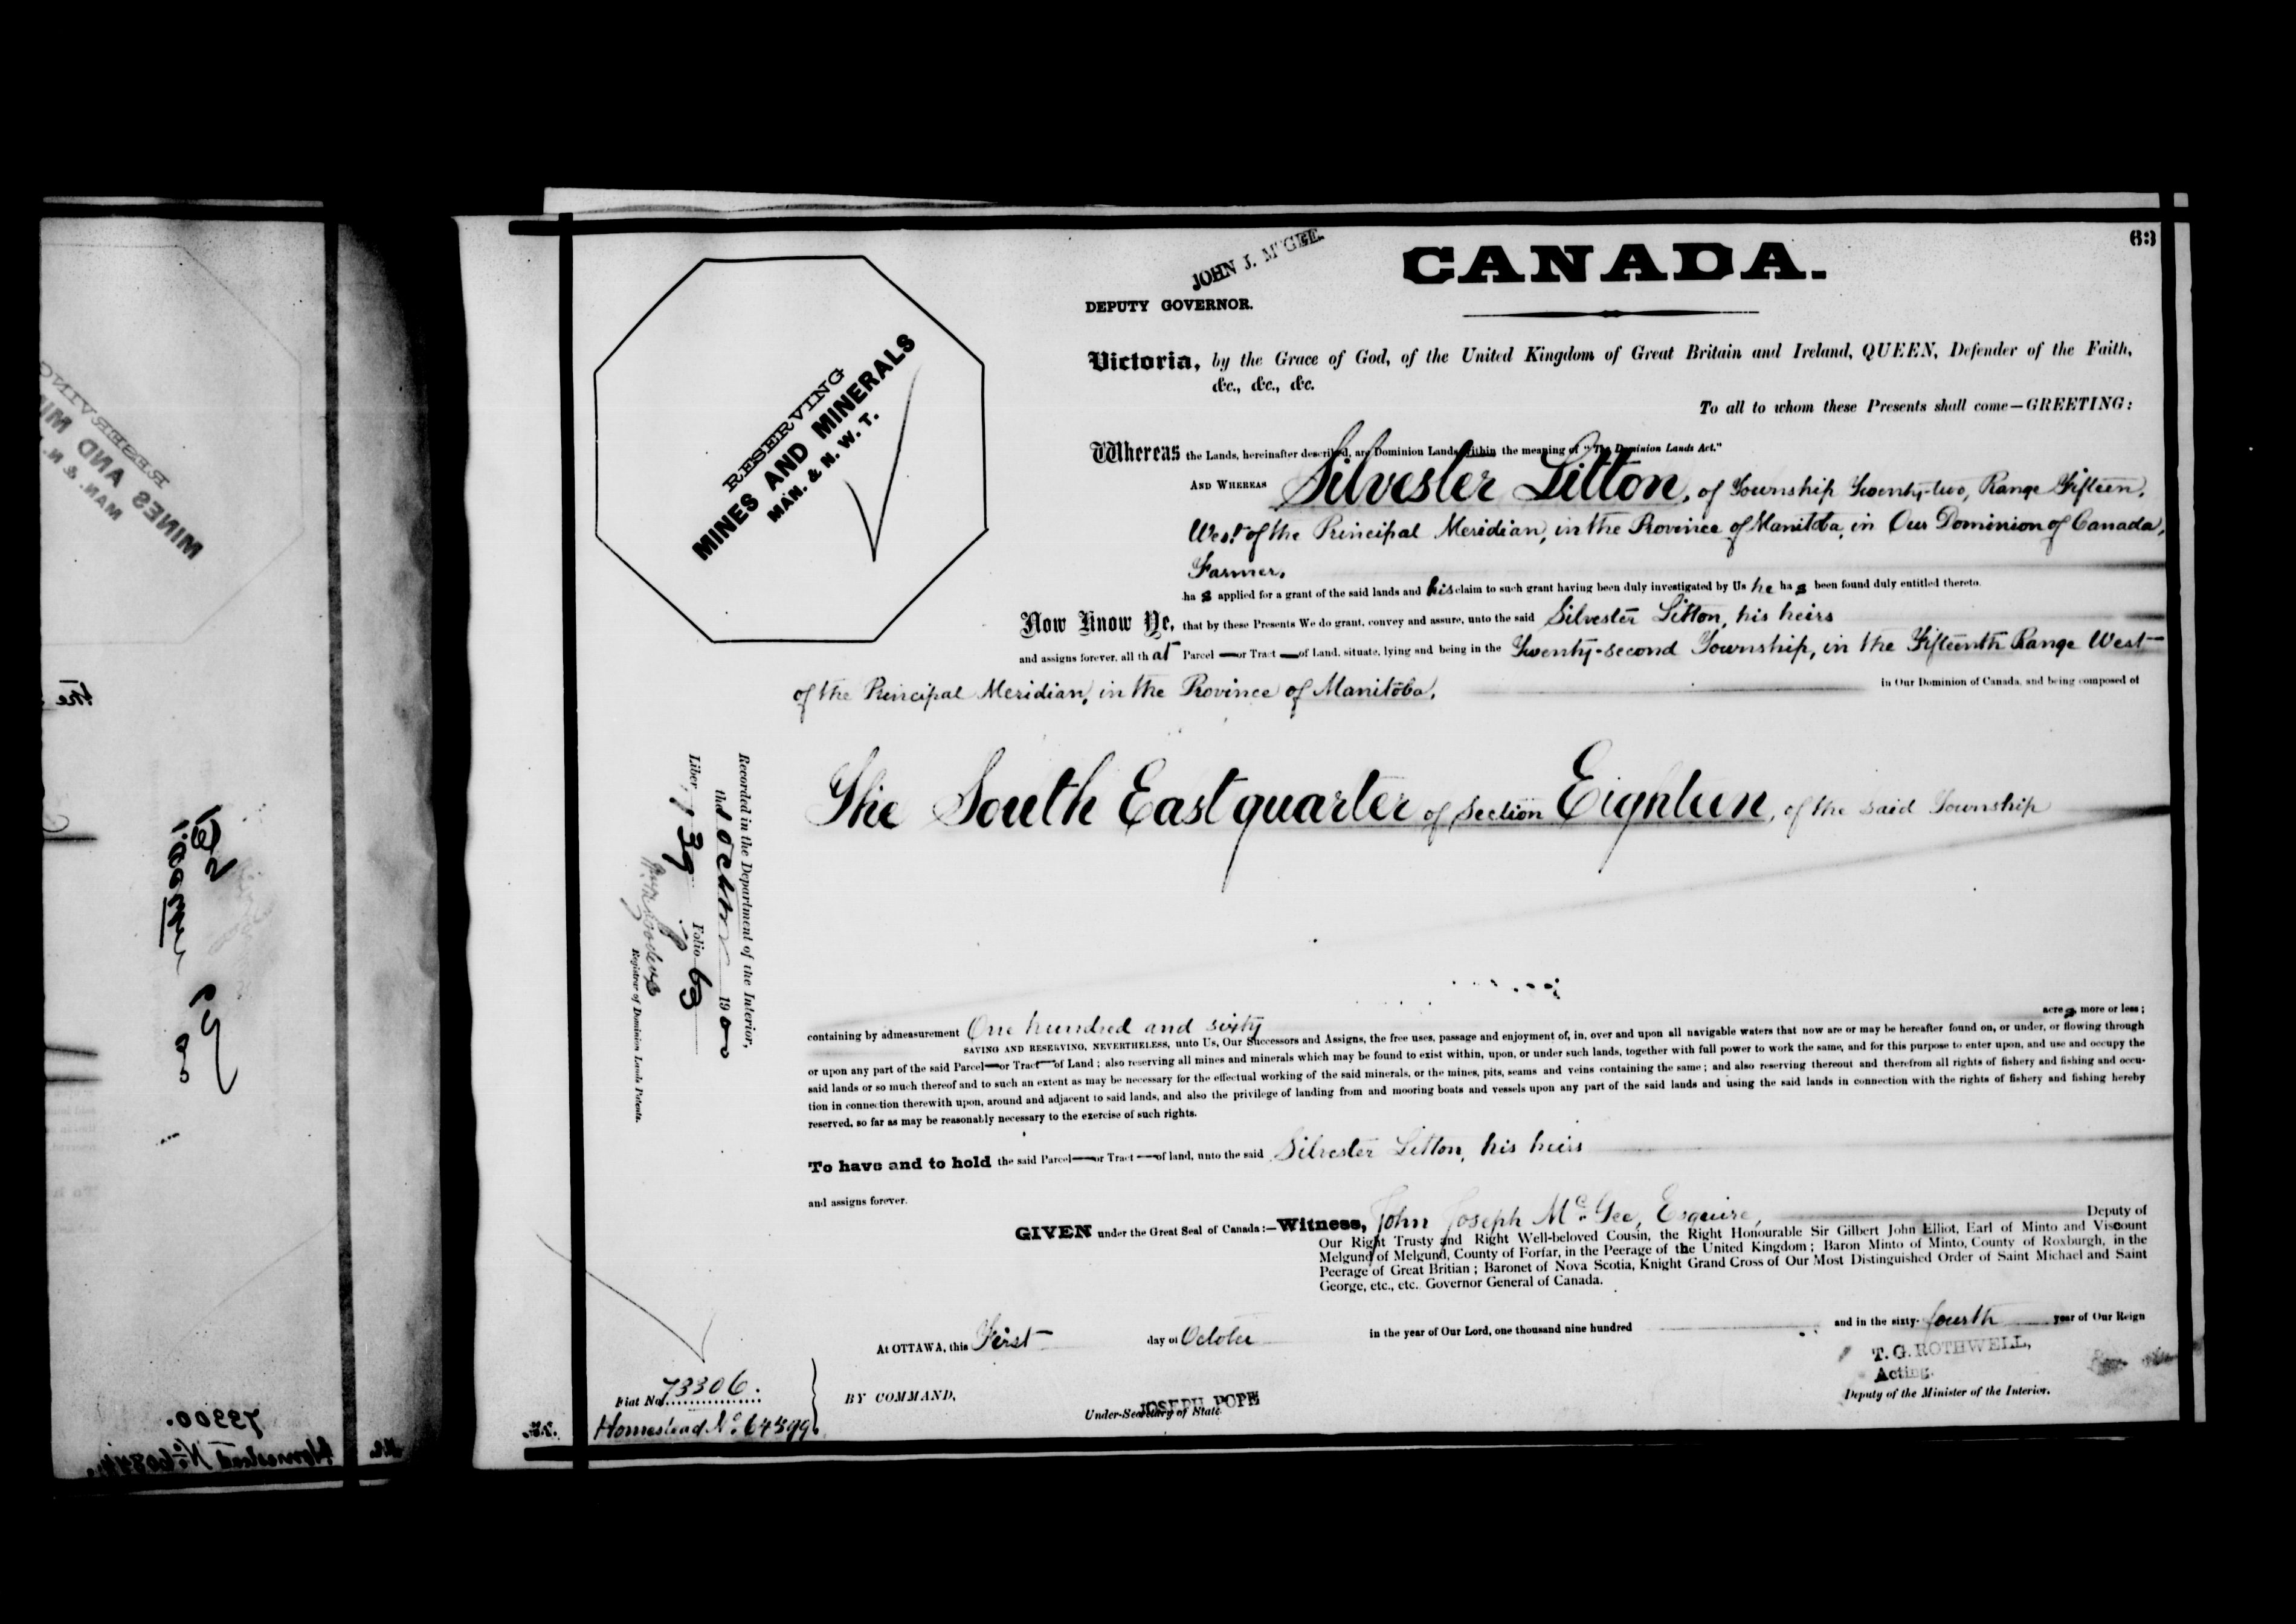 63
JOHN J. McGEE.
CANADA.
DEPUTY GOVERNOR.
RESERVING
MINES AND MINERALS
MAN. & N. W. T.
Victoria, by the Grace of God, of the United Kingdom of Great Britain and Ireland, QUEEN, Defender of the Faith,
&c., &c., &c.
To all to whom these Presents shall come—GREETING:
Whereas the Lands, hereinafter described, are Dominion Lands within the meaning of "The Dominion Lands Act."
AND WHEREAS Silvester Litton, of Township Twenty-two, Range Fifteen,
West of the Principal Meridian, in the Province of Manitoba, in Our Dominion of Canada,
Farmer,
has applied for a grant of the said lands and his claim to such grant having been duly investigated by Us he has been found duly entitled thereto.
Now Know Ye, that by these Presents We do grant, convey and assure, unto the said Silvester Litton, his heirs
and assigns forever, all that Parcel—or Tract—of Land, situate, lying and being in the Twenty-second Township, in the Fifteenth Range West
of the Principal Meridian, in the Province of Manitoba, in Our Dominion of Canada, and being composed of
The South East quarter of Section Eighteen, of the said Township
Recorded in the Department of the Interior,
the 1 October 1900
Liber 139 Folio 63
Registrar of Dominion Lands Patents.
containing by admeasurement One hundred and sixty acres, more or less;
SAVING AND RESERVING, NEVERTHELESS, unto Us, Our Successors and Assigns, the free uses, passage and enjoyment of, in, over and upon all navigable waters that now are or may be hereafter found on, or under, or flowing through
or upon any part of the said Parcel—or Tract—of Land; also reserving all mines and minerals which may be found to exist within, upon, or under such lands, together with full power to work the same, and for this purpose to enter upon, and use and occupy the
said lands or so much thereof and to such an extent as may be necessary for the effectual working of the said minerals, or the mines, pits, seams and veins containing the same; and also reserving thereout and therefrom all rights of fishery and fishing and occu-
tion in connection therewith upon, around and adjacent to said lands, and also the privilege of landing from and mooring boats and vessels upon any part of the said lands and using the said lands in connection with the rights of fishery and fishing hereby
reserved, so far as may be reasonably necessary to the exercise of such rights.
To have and to hold the said Parcel—or Tract—of land, unto the said Silvester Litton, his heirs
and assigns forever.
GIVEN under the Great Seal of Canada:—Witness, John Joseph McGee, Esquire, Deputy of
Our Right Trusty and Right Well-beloved Cousin, the Right Honourable Sir Gilbert John Elliot, Earl of Minto and Viscount
Melgund of Melgund, County of Forfar, in the Peerage of the United Kingdom; Baron Minto of Minto, County of Roxburgh, in the
Peerage of Great Britian; Baronet of Nova Scotia, Knight Grand Cross of Our Most Distinguished Order of Saint Michael and Saint
George, etc., etc. Governor General of Canada.
At OTTAWA, this First day of October in the year of Our Lord, one thousand nine hundred and in the sixty-fourth year of Our Reign
T. G. ROTHWELL,
Acting.
Deputy of the Minister of the Interior.
Fiat No. 73306.
Homestead No. 64399.
BY COMMAND,
JOSEPH POPE
Under-Secretary of State